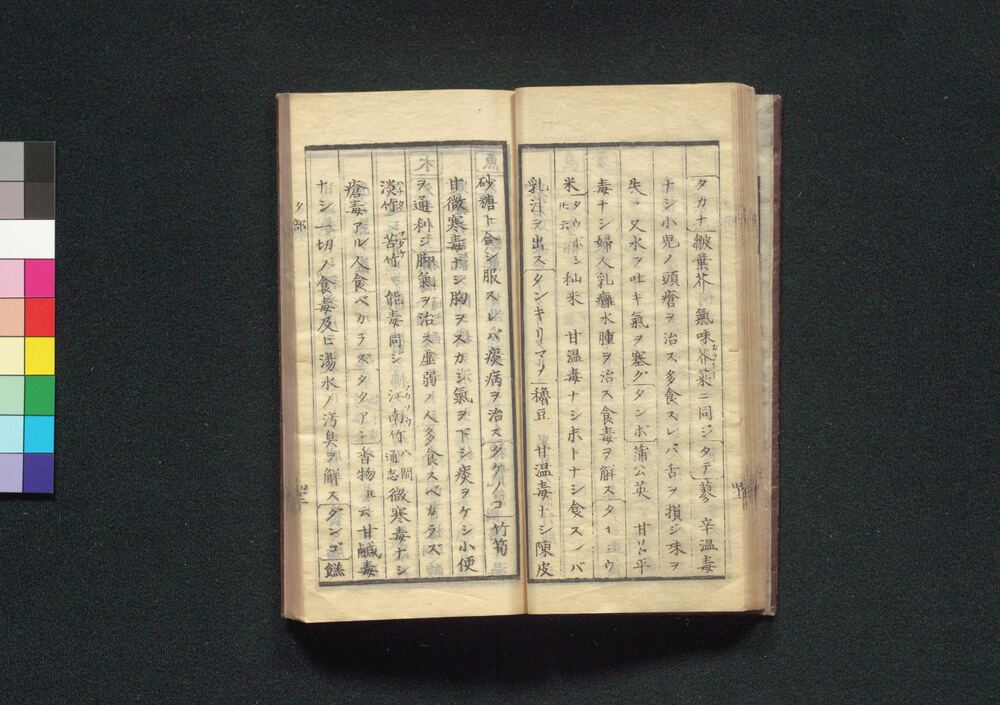 タカナ 皺葉芥 氣味芥菜ニ同ジ タデ 蓼 辛温毒
ナシ小児ノ頭瘡ヲ治ス多食スレバ舌ヲ損ジ味ヲ
失ヽ又水ヲ吐キ氣ヲ塞グ タンホ 蒲公英 甘苦平
毒ナシ婦人乳癰水腫ヲ治ス食毒ヲ解ス タイウ
米 タウボシ 𪜈云 籼米 甘温毒ナシ ホトナシ食スレバ
乳汁ヲ出ス タンキリマメ 穭豆 甘温毒ナシ陳皮
砂糖ト合シ服スレバ痰病ヲ治ス タケノコ 竹筍
甘微寒毒ナシ胸ヲスカシ氣ヲ下シ痰ヲケシ小便
ヲ通利シ脚氣ヲ治ス虚弱ノ人多食スベカラズ
淡竹 ハチク 苦竹 マダケ 能毒同ジ 江南竹 ハ閩通志 微寒毒ナシ
瘡毒アル人食ベカラズ タクアン 香物 𪜈云 甘鹹毒
ナシ一切ノ食毒及ヒ湯水ノ汚臭ヲ解ス ダンゴ 餻
タ部